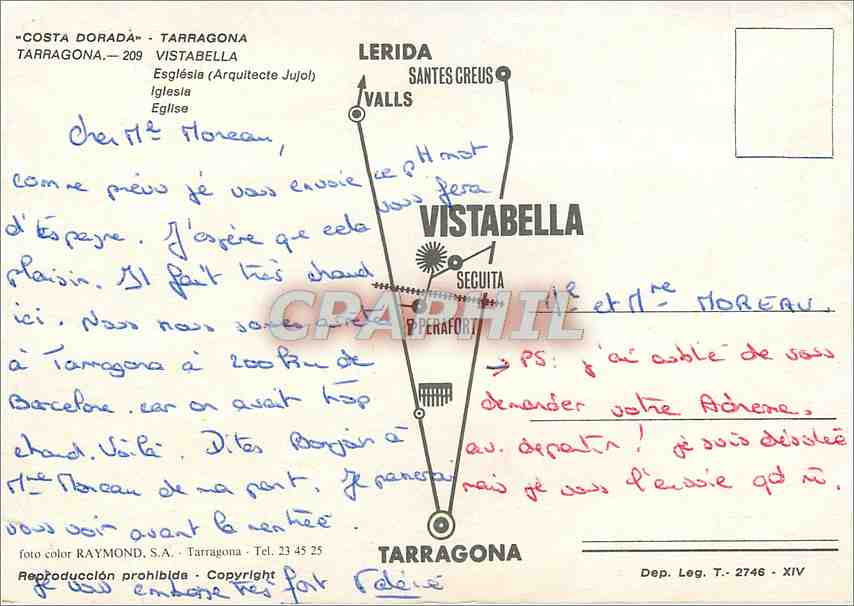 "COSTA DORADA" - TARRAGONA
TARRAGONA.— 209 VISTABELLA
Església (Arquitecte Jujol)
Iglesia
Eglise
Cher Mr Moreau,
comme prévu je vous envoie ce ptit mot
d'Espagne. J'espère que cela vous fera
plaisir. Il fait très chaud
ici. Nous nous sommes arrêté
à Tarragona à 200 km de
Barcelone car on avait trop
chaud. Voilà. Dites Bonjour à
Mme Moreau de ma part. Je passerai
vous voir avant la rentrée.
je vous embrasse très fort Valérie
foto color RAYMOND, S.A. - Tarragona - Tel. 23 45 25
Reproducción prohibida - Copyright
LERIDA
SANTES CREUS
VALLS
VISTABELLA
SECUITA
PERAFORT
TARRAGONA
CPAPHIL
Mr et Mme MOREAU.
→ PS: j'ai oublié de vous
demander votre Adresse.
av. de partir ! je suis désolée
mais je vous l'envoie qd m.
Dep. Leg. T.- 2746 - XIV